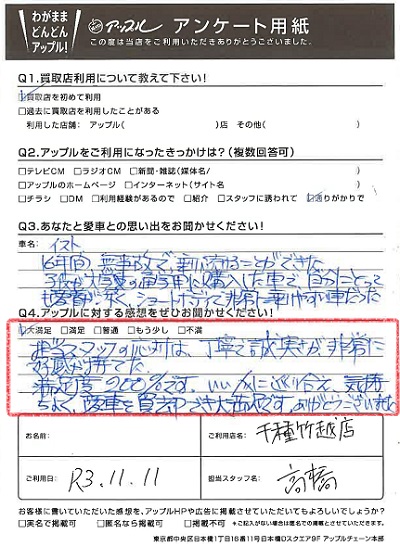 わがまま
どんどん
アップル!
アップル アンケート用紙
この度は当店をご利用いただきありがとうございました。
Q1.買取店利用について教えて下さい!
☑買取店を初めて利用
□過去に買取店を利用したことがある
利用した店舗: アップル( )店 その他( )
Q2.アップルをご利用になったきっかけは?(複数回答可)
□テレビCM □ラジオCM □新聞・雑誌(媒体名/ )
□アップルのホームページ □インターネット(サイト名 )
□チラシ □DM □利用経験があるので □紹介 □スタッフに誘われて ☑通りがかりで
Q3.あなたと愛車との思い出をお聞かせください!
車名: イスト
16年間 無事故で乗り続けることができた
子供が大学の通学用に購入した車で 自分にとって
も 、ショートボディで非常に乗りやすい車だった
Q4.アップルに対する感想をぜひお聞かせください!
☑大満足 □満足 □普通 □もう少し □不満
担当スタッフの応対は、丁寧で誠実さが非常に
好感が持てた。
満足度200%です。いい人に巡り合え、気持
ちよく、愛車を買却でき大満足です。ありがとうございました
お名前:
ご利用店名: 千種竹越店
ご利用日: R3.11.11
担当スタッフ名: 高橋
お客様に書いていただいた感想を、アップルHPや広告に掲載させていただいてもよろしいでしょうか?
□実名で掲載可 □匿名なら掲載可 □不可 *ご記入がない場合は匿名での掲載とさせていただきます。
東京都中央区日本橋1丁目16番11号日本橋Dスクエア9F アップルチェーン本部